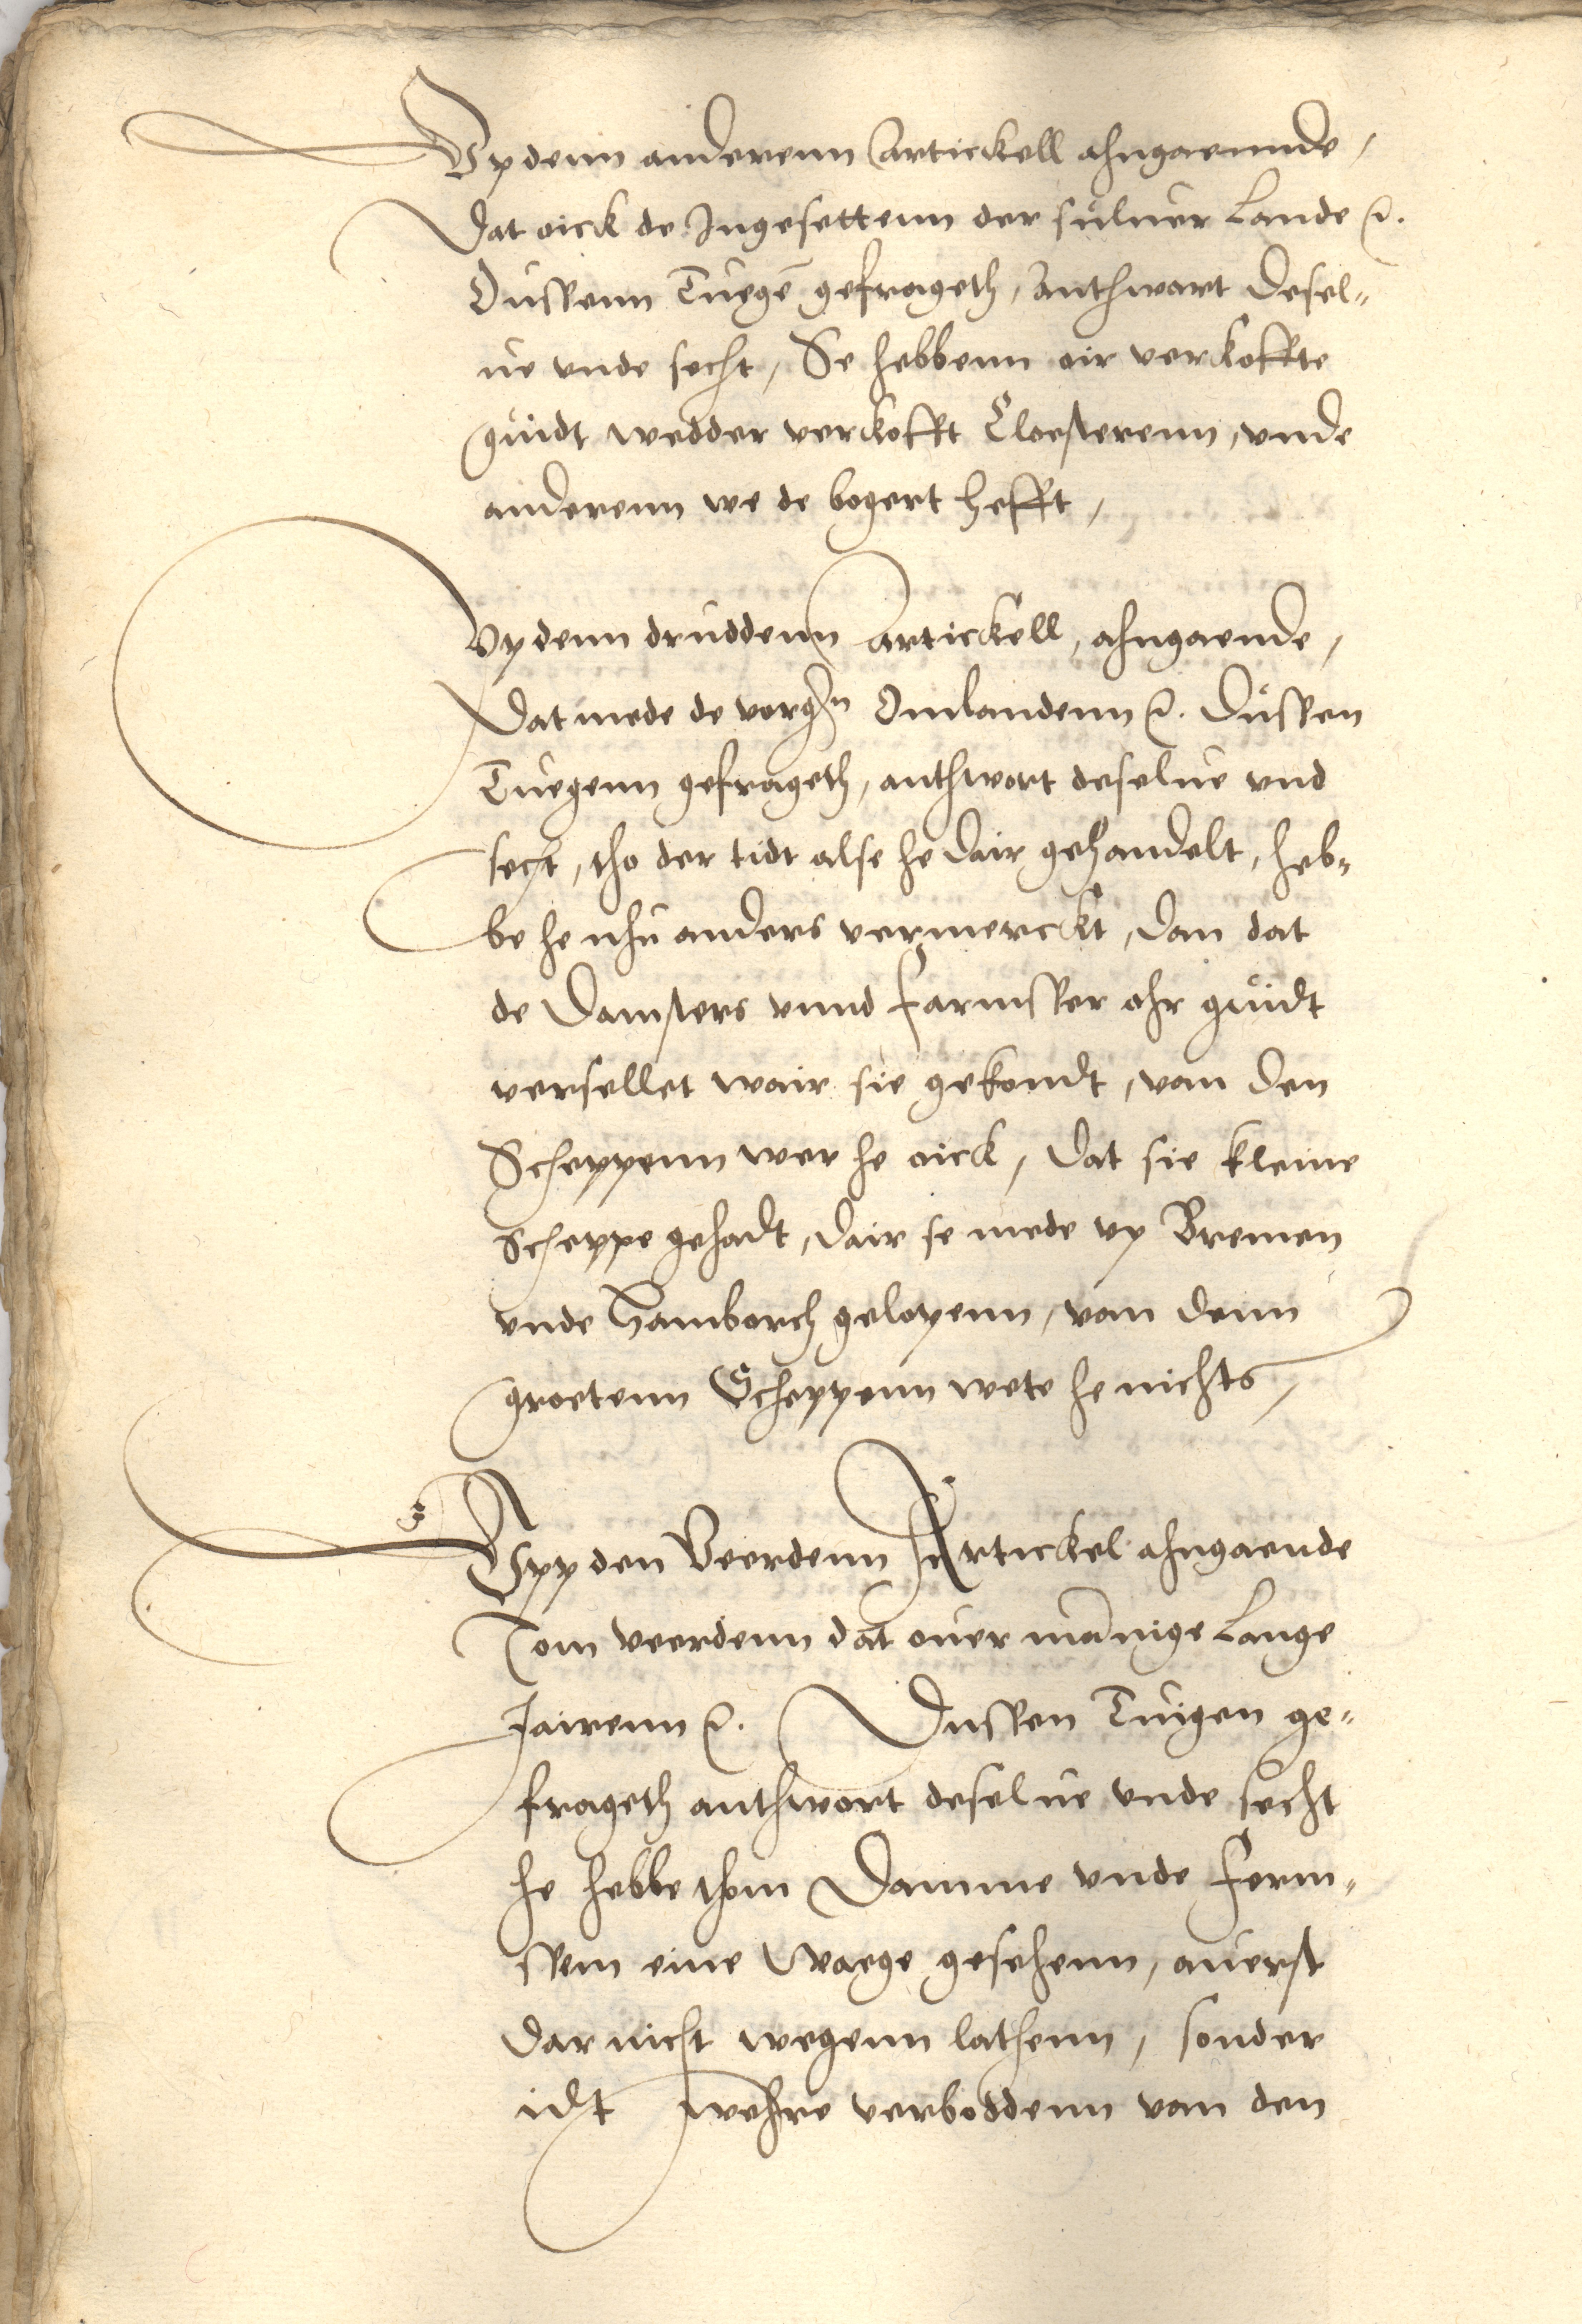 Vp denn anderenn Artickell ahngaennde,
Dat oick de Ingesettenn der sůluer Lande ꝛc.
Dussenn Tuegē gefrageth, Anthwort desel-
ue vnde secht, Se hebbenn oir verkoffte
gůidt wedder verkofft Cloesterenn, vnde
anderenn we de begert hefft,
Vp denn druddenn Artickell, ahngaende,
Dat mede de vorgn Omlandenn ꝛc. Důssen
Tuegenn gefrageth, anthwort deselue vnd
secht, tho der tidt alse he dair gehandelt, heb-
be he nhu anders vermerckt, dan dat
de Damsters vnnd Farmsser ohr gůidt
versellet wair sie gekondt, van den
Scheppenn wer he oick, dat sie kleine
Scheppe gehadt, dair se mede vp Bremen
vnde Hamborch gelopenn, van denn
groetenn Scheppenn wete he nichts,
Vpp den Veerdenn Artickel ahngaende
Tom veerdenn dat ouer mannige Lange
Jairenn ꝛc. Dussen Tuigen ge-
frageth anthwort deselue vnde secht
he hebbe thom Damme vnde Ferm-
ssem eine Waege gesehenn, auerst
dar nicht wegenn lathenn, sonder
idt wehre verboddenn van den